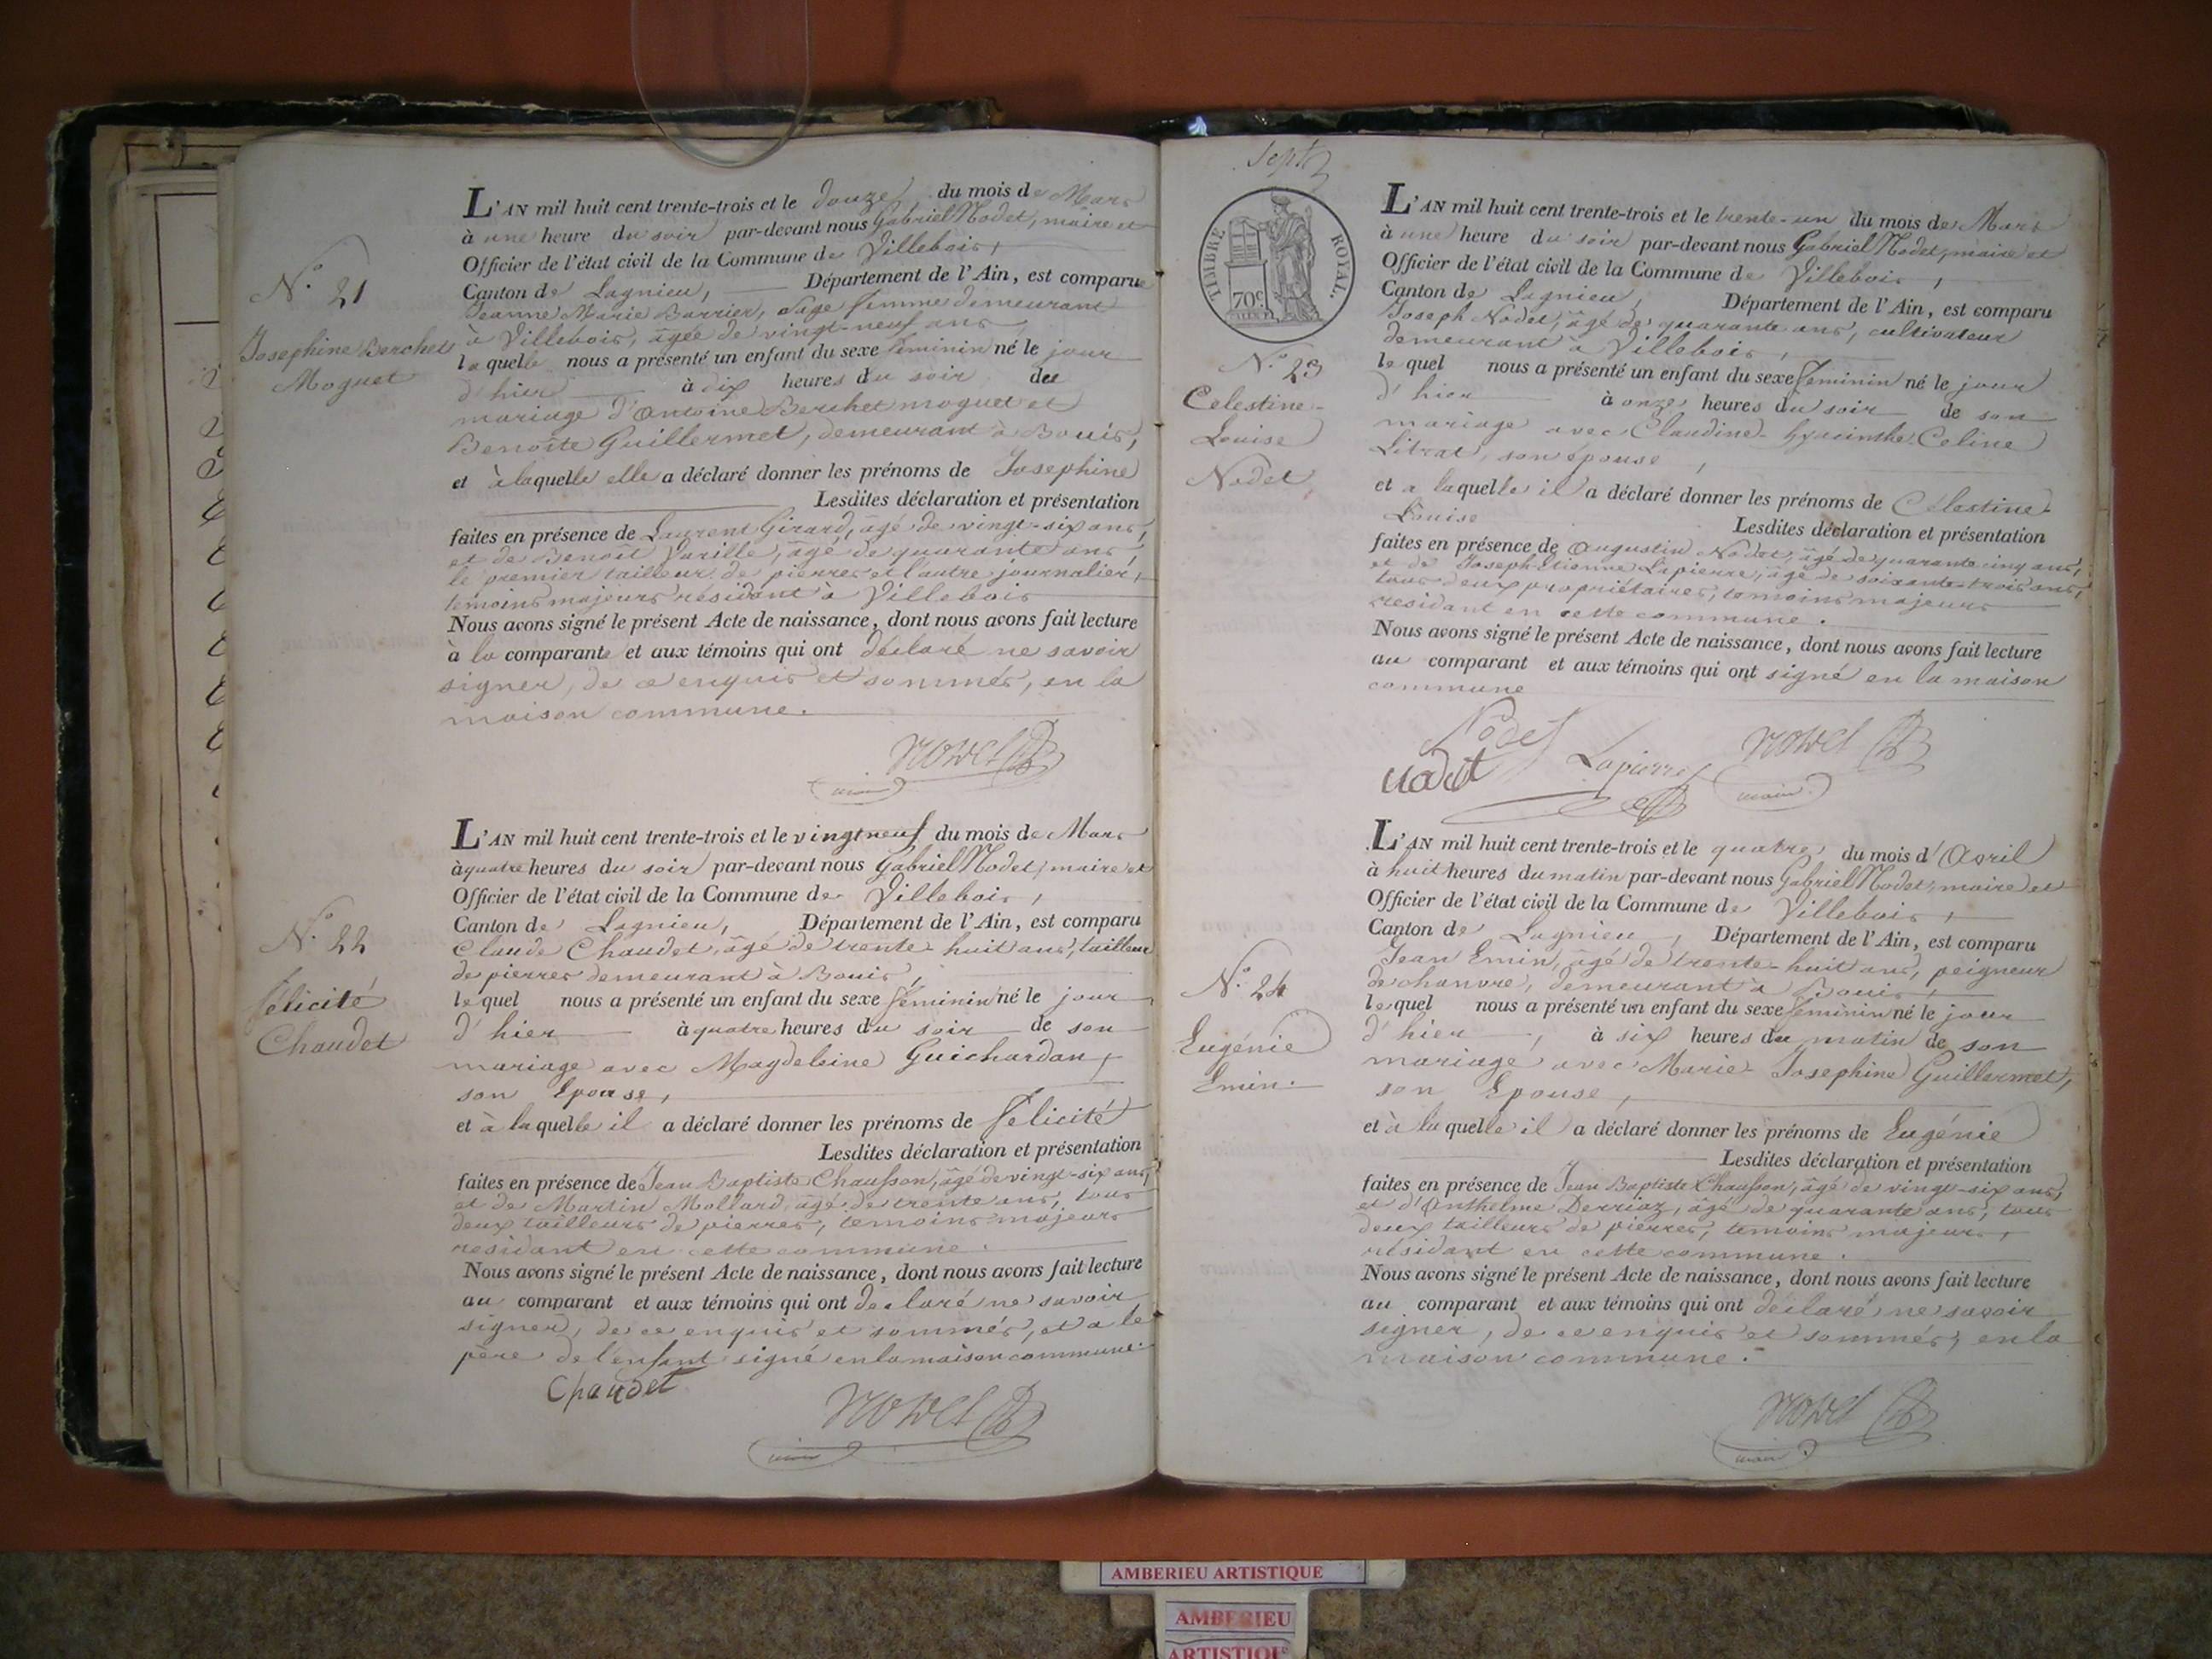 N.° 21
Josephine Berchet
Moguet
L'AN mil huit cent trente-trois et le douze du mois de Mars
à une heure du soir par-devant nous Gabriel Nodet, maire et
Officier de l'état civil de la Commune de Villebois,
Canton de Lagnieu, Département de l'Ain, est comparue
Jeanne Marie Barrier, sage femme demeurant
à Villebois, âgée de vingt-neuf ans
laquelle nous a présenté un enfant du sexe feminin né le jour
d'hier à dix heures du soir du
mariage d'Antoine Berchet moguet et
Benoîte Guillermet, demeurant à Bouis,
et à laquelle elle a déclaré donner les prénoms de Josephine
Lesdites déclaration et présentation
faites en présence de Laurent Girard, âgé de vingt-six ans,
et de Benoît Varille, âgé de quarante ans,
le premier tailleur de pierres et l'autre journalier,
temoins majeurs résidant à Villebois
Nous avons signé le présent Acte de naissance, dont nous avons fait lecture
à la comparante et aux témoins qui ont déclaré ne savoir
signer, de ce enquis et sommés, en la
maison commune.
Nodet
maire
N.° 22
félicité
Chaudet
L'AN mil huit cent trente-trois et le vingt neuf du mois de Mars
à quatre heures du soir par-devant nous Gabriel Nodet, maire et
Officier de l'état civil de la Commune de Villebois,
Canton de Lagnieu, Département de l'Ain, est comparu
Claude Chaudet, âgé de trente-huit ans, tailleur
de pierres demeurant à Bouis,
lequel nous a présenté un enfant du sexe féminin né le jour
d'hier à quatre heures du soir de son
mariage avec Magdeleine Guichardan,
son Epouse,
et à laquelle il a déclaré donner les prénoms de félicité
Lesdites déclaration et présentation
faites en présence de Jean Baptiste Chausson, âgé de vingt-six ans,
et de Martin Mollard, âgé de trente ans, tous
deux tailleurs de pierres, temoins majeurs
residant en cette commune.
Nous avons signé le présent Acte de naissance, dont nous avons fait lecture
au comparant et aux témoins qui ont déclaré ne savoir
signer, de ce enquis et sommés, et a le
père de l'enfant signé en la maison commune.
Chaudet
Nodet
maire
Sept
TIMBRE ROYAL.
70c
N.° 23
Celestine-
Louise
Nodet
L'AN mil huit cent trente-trois et le trente-un du mois de Mars
à une heure du soir par-devant nous Gabriel Nodet, maire et
Officier de l'état civil de la Commune de Villebois,
Canton de Lagnieu, Département de l'Ain, est comparu
Joseph Nodet, âgé de quarante ans, cultivateur
demeurant à Villebois,
lequel nous a présenté un enfant du sexe feminin né le jour
d'hier à onze heures du soir de son
mariage avec Claudine-hyacinthe Celine
Litrat, son épouse,
et a laquelle il a déclaré donner les prénoms de Célestine-
Louise
Lesdites déclaration et présentation
faites en présence de Augustin Nodet, âgé de quarante cinq ans,
et de Joseph Etienne Lapierre, âgé de soixante-trois ans,
tous deux propriétaires, temoins majeurs
residant en cette commune.
Nous avons signé le présent Acte de naissance, dont nous avons fait lecture
au comparant et aux témoins qui ont signé en la maison
commune
Nodet
nadet Lapierre Nodet
maire
N.° 24
Eugénie
Emin.
L'AN mil huit cent trente-trois et le quatre du mois d'Avril
à huit heures du matin par-devant nous Gabriel Nodet, maire et
Officier de l'état civil de la Commune de Villebois,
Canton de Lagnieu, Département de l'Ain, est comparu
Jean Emin, âgé de trente-huit ans, peigneur
de chanvre, demeurant à Bouis,
lequel nous a présenté un enfant du sexe féminin né le jour
d'hier, à six heures du matin de son
mariage avec Marie-Josephine Guillermet,
son Epouse,
et à laquelle il a déclaré donner les prénoms de Eugénie
Lesdites déclaration et présentation
faites en présence de Jean Baptiste Chausson, âgé de vingt-six ans,
et d'Anthelme Derriaz, âgé de quarante ans, tous
deux tailleurs de pierres, temoins majeurs,
résidant en cette commune.
Nous avons signé le présent Acte de naissance, dont nous avons fait lecture
au comparant et aux témoins qui ont déclaré ne savoir
signer, de ce enquis et sommés, en la
maison commune.
Nodet
maire
AMBERIEU ARTISTIQUE
AMBERIEU
ARTISTIQUE